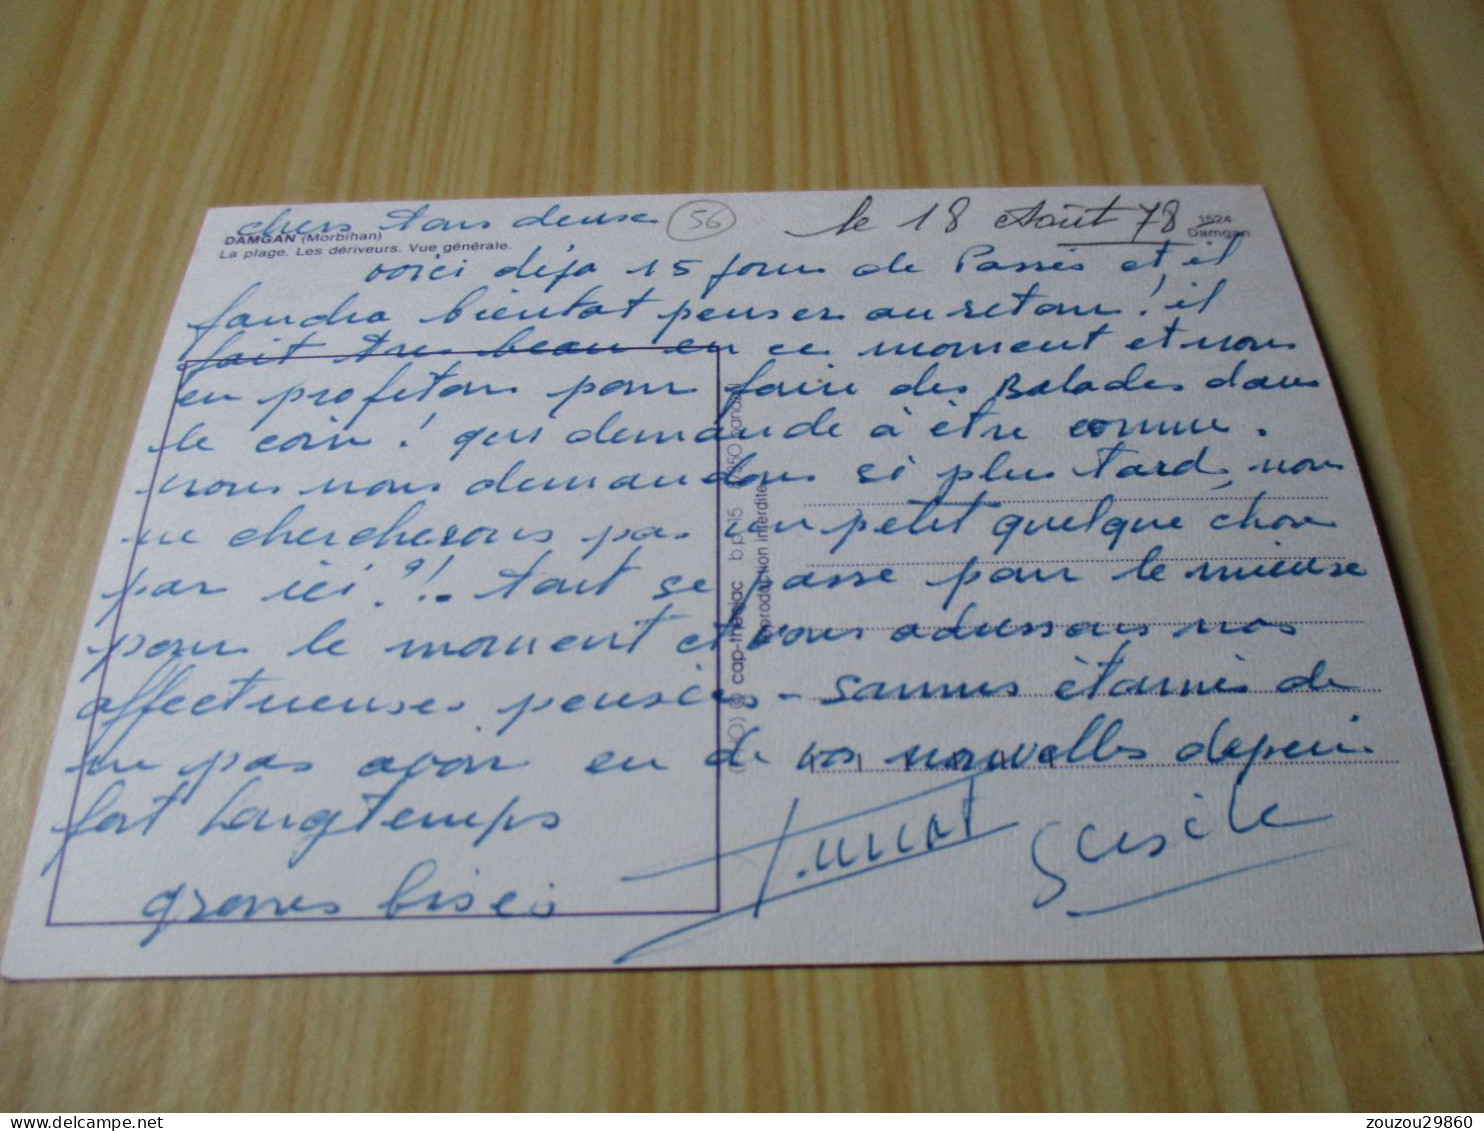 chers tous deux 56 le 18 Août 78
1524
Damgan
DAMGAN (Morbihan)
La plage. Les dériveurs. Vue générale.
voici déja 15 jours de Passés et il
faudra bientot penser au retour! il
fait tres beau en ce moment et nous
en profitons pour faire des Balades dans
le coin! qui demande à être connu.
nous nous demandons si plus tard, nous
ne chercherons pas un petit quelque chose
par ici?!.. tout se passe pour le mieux
pour le moment et vous adressons nos
affectueuses pensées - sommes étonnés de
ne pas avoir eu de vos nouvelles depuis
fort longtemps
grosses bises
cap-théojac b.p. 15
reproduction interdite
zouzou29860
delcampe.net